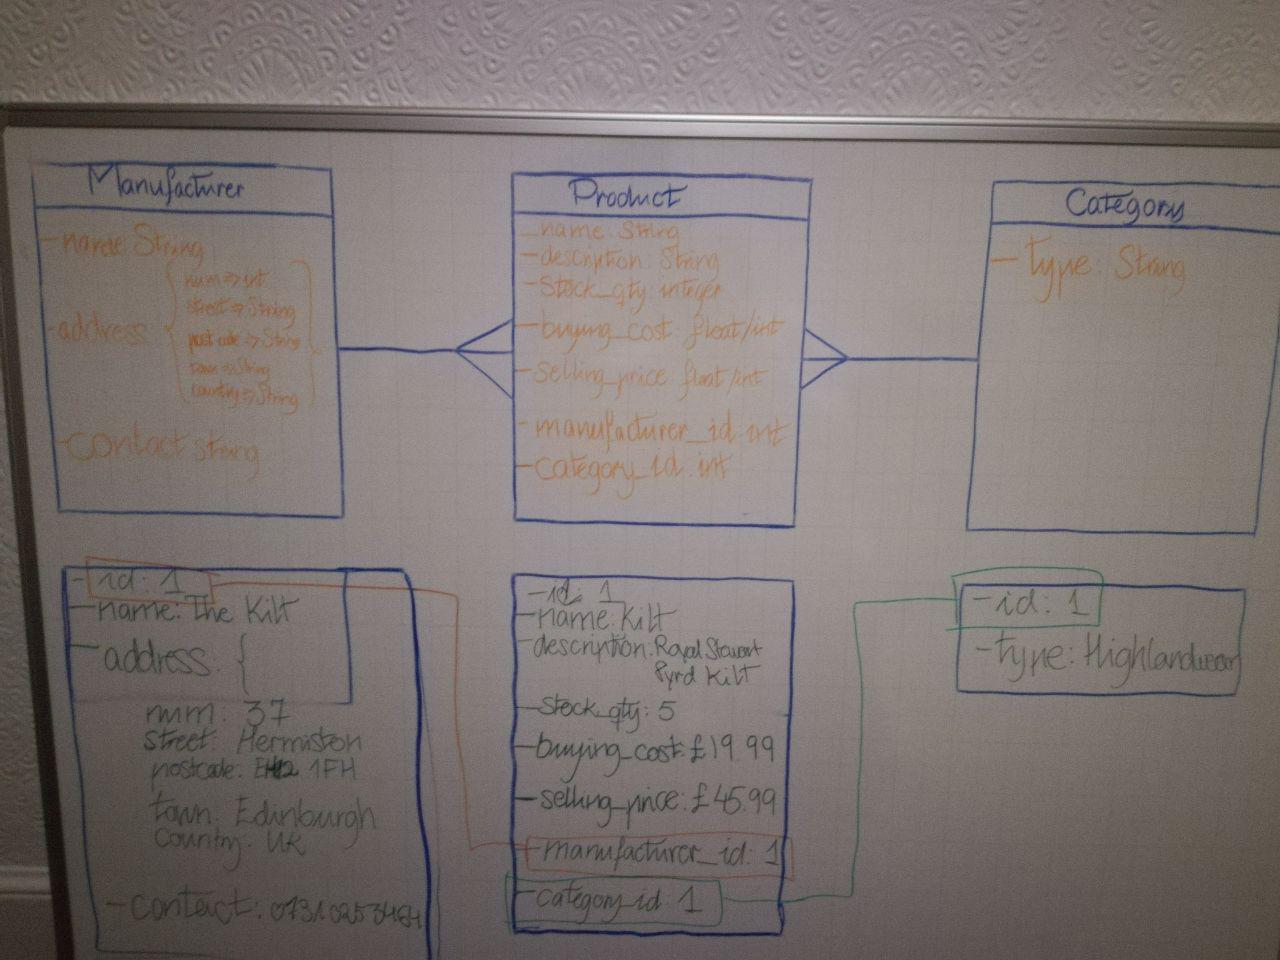 Manufacturer
- name: String
- address {
num => int
street => String
post code => String
town => String
country => String
}
- contact string
Product
- name: String
- description: String
- Stock_qty: integer
- buying_cost: float/int
- selling_price: float/int
- manufacturer_id: int
- category_id: int
Category
- type: String
- id: 1
- name: The Kilt
- address: {
num: 37
street: Hermiston
postcode: EH12 1FH
town: Edinburgh
Country: UK
- contact:
- id: 1
- name: Kilt
- description: Royal Stewart
8yrd Kilt
- Stock_qty: 5
- buying_cost: £19.99
- selling_price: £45.99
- manufacturer_id: 1
- category_id: 1
- id: 1
- type: Highlandwear